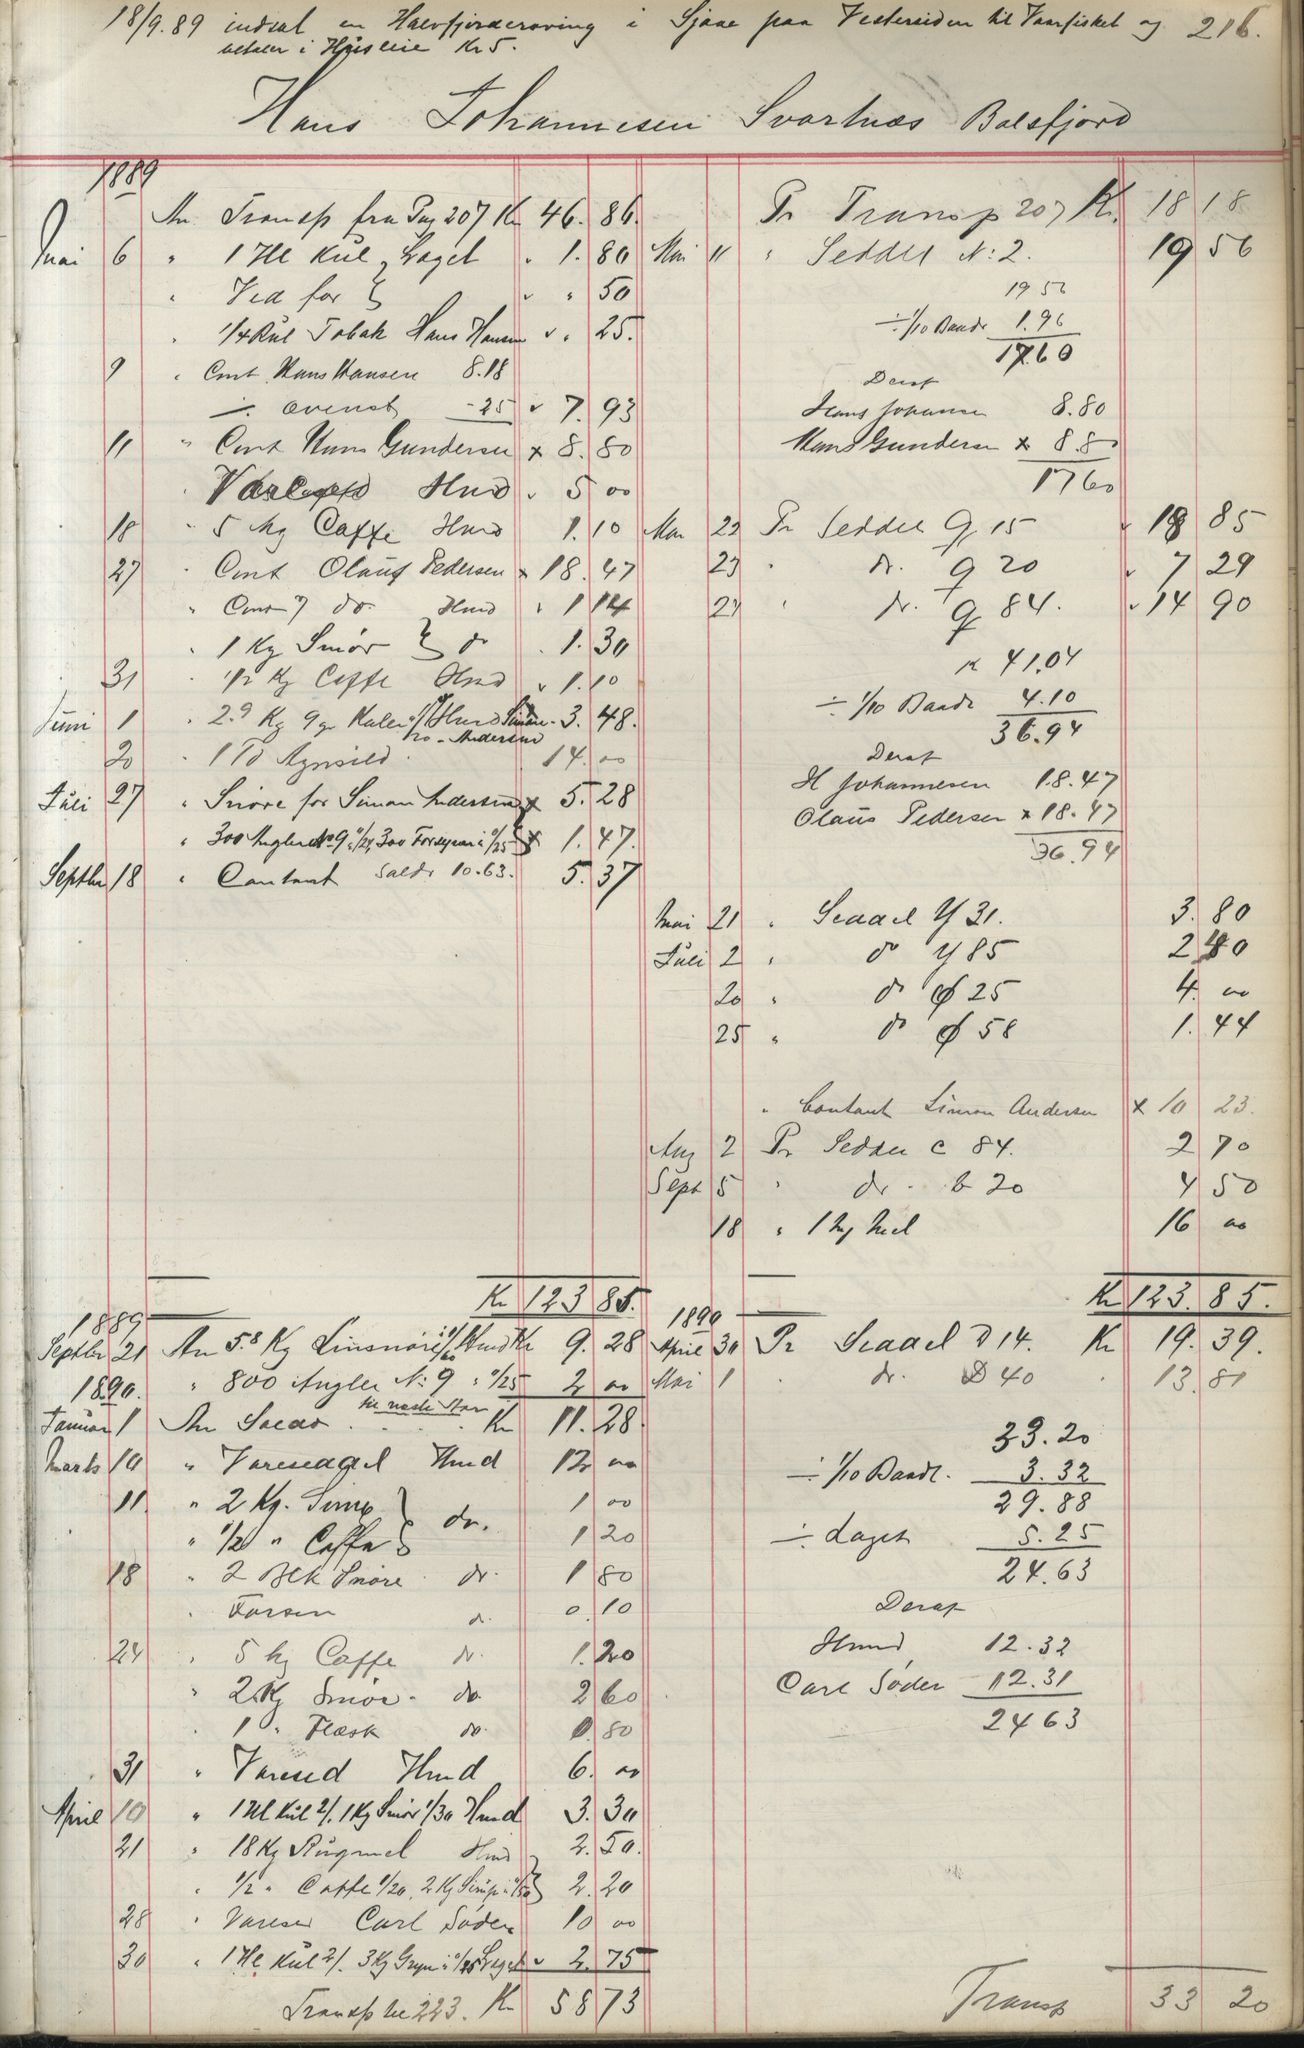 18/9.89 indsat en Halvfjorderoving i Sjaae paa Vestersiden til Vaarfisket og 216.
betaler i Husleie Kr 5.
Hans Johannesen Svartnæs Balsfjord
1889
An Transp fra Pag 207 Kr 46. 86.
Mai 6 " 1 Hl Kul } Laget " 1. 80
" Ved for } " " 50
" 1/4 Rul Tobak Hans Hansen " " 25.
9 " Cont. Hans Hansen 8.18
÷ ovenst - 25 " 7. 93
11 " Cont Hans Gundersen x 8. 80
" Hmd " 5 00
18 " 5 hg Caffe Hmd 1. 10
27 " Cont Olaus Pedersen x 18. 47
" Cont do Hmd " 1 14
" 1 Kg Smør } do " 1. 30
31 " 1/2 Kg Caffe Hmd " 1. 10
Juni 1 " 2.9 Kg 9 gr Hmd Simon Andersen 3. 48.
20 " 1 Td Agnsild 14. 00
Juli 27 " Snøre for Simon Andersen x 5. 28
" 300 Angler No 9 1/24 300 Forsyn i 1/25 } x 1. 47.
Septbr 18 " Contant Saldo 10.63. 5. 37
Kr 123 85.
Pr Transp 207 Kr. 18 18
Mai 11 " Seddel N: 2. 19 56
19 56
÷ 1/10 Baade 1.96
17.60
Deraf
Hans Johansen 8.80
Hans Gundersen x 8.80
17 60
Mai 22 Pr Seddel G 15 " 18 85
23 " do. G 20 " 7 29
27 " do. G 84. " 14 90
Kr 41.04
÷ 1/10 Baade 4.10
36.94
Deraf
H Johannesen 18.47
Olaus Pedersen x 18.47
36.94
Mai 21 " Seddel Y 31. 3. 80
Juli 2 " do Y 85 2 40
20 " do ₵ 25 4. 00
25 " do ₵ 58 1. 44
" Contant Simon Andersen x 10 23.
Aug 2 Pr Seddel C 84. 2 70
Sept 5 " do. b 20 4 50
18 " 1 Mel 16 00
Kr 123. 85.
1889
Septbr 21 An 5.8 Kg Linsnøre i 1/60 Hmd Kr 9. 28
1890. " 800 Angler N: 9 " 1/25 2 00
til næste Aar
Januar 1 An Saldo Kr 11. 28.
Marts 10 " Vareseddel Hmd 12 00
11. " 2 Kg. Sirup } do. 1 00
" 1/2 " Caffe } 1 20
18 " 2 Stk Snøre do. 1 80
" Forsen do. 0. 10
24 " 5 hg Caffe do. 1. 20
" 2 Kg Smør. do 2 60
" 1 " Flæsk do. 0. 80
31 " Varesed Hmd 6. 00
April 10 " 1 Hl Kul 2/. 1 Kg Smør 1/30 Hmd 3. 30
21 " 18 Kg Rugmel Hmd } 2. 50.
" 1/2 " Caffe 1/20, 2 Kg Sirup i 1/50 } 2. 20
28 " Varesed Carl Søder 10 00
30 " 1 Hl Kul 2/. 3 Kg Gryn i 1/25 Laget " 2. 75
Transp til 223. Kr 58 73
1890
April 30 Pr Seddel D 14. Kr 19. 39.
Mai 1 " do. D 40 " 13. 81
33.20
÷ 1/10 Baadl. 3.32
29.88
÷ Laget 5.25
24.63
Deraf
Hmd 12.32
Carl Søder 12.31
24 63
Transp 33 20